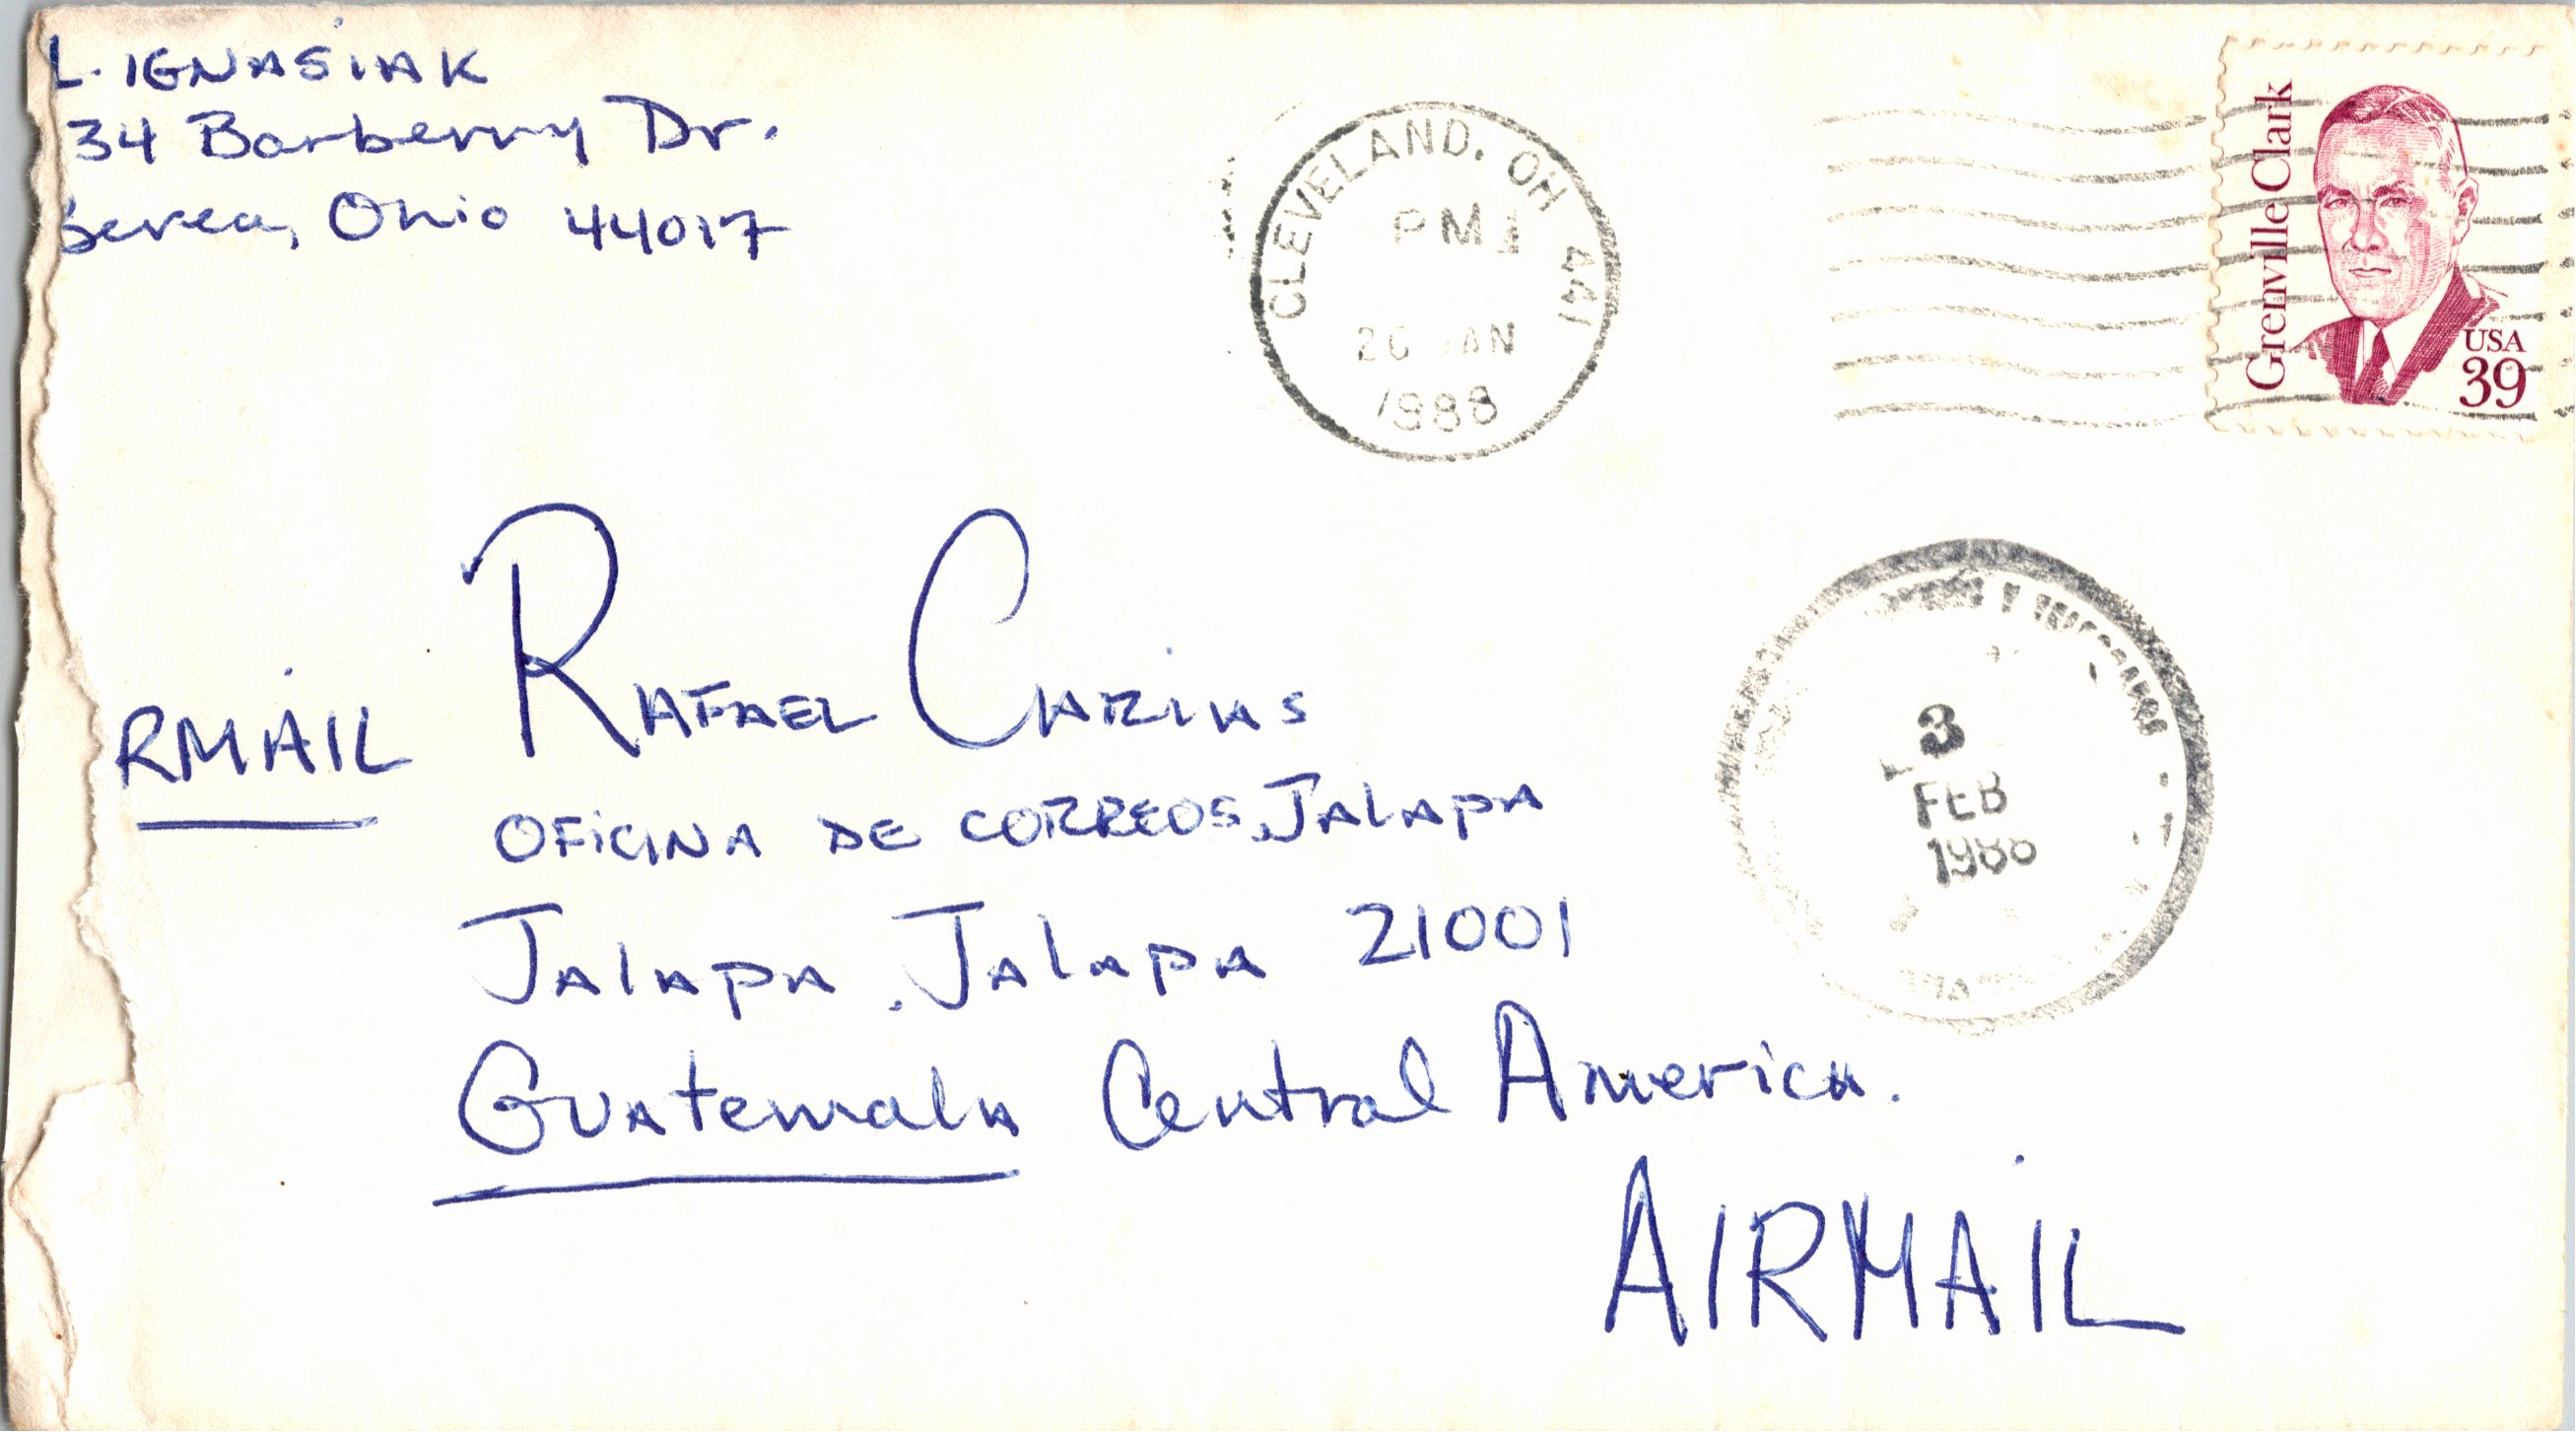 L. IGNASIAK
34 Barberry Dr.
berea, Ohio 44017
CLEVELAND, OH 441
PM
1988
Grenville Clark
USA
39
RMAIL
RAFAEL CARIAS
OFICINA DE CORREOS JALAPA
JALAPA, JALAPA 21001
GUATEMALA Central America.
AIRMAIL
Y
3
FEB
1988